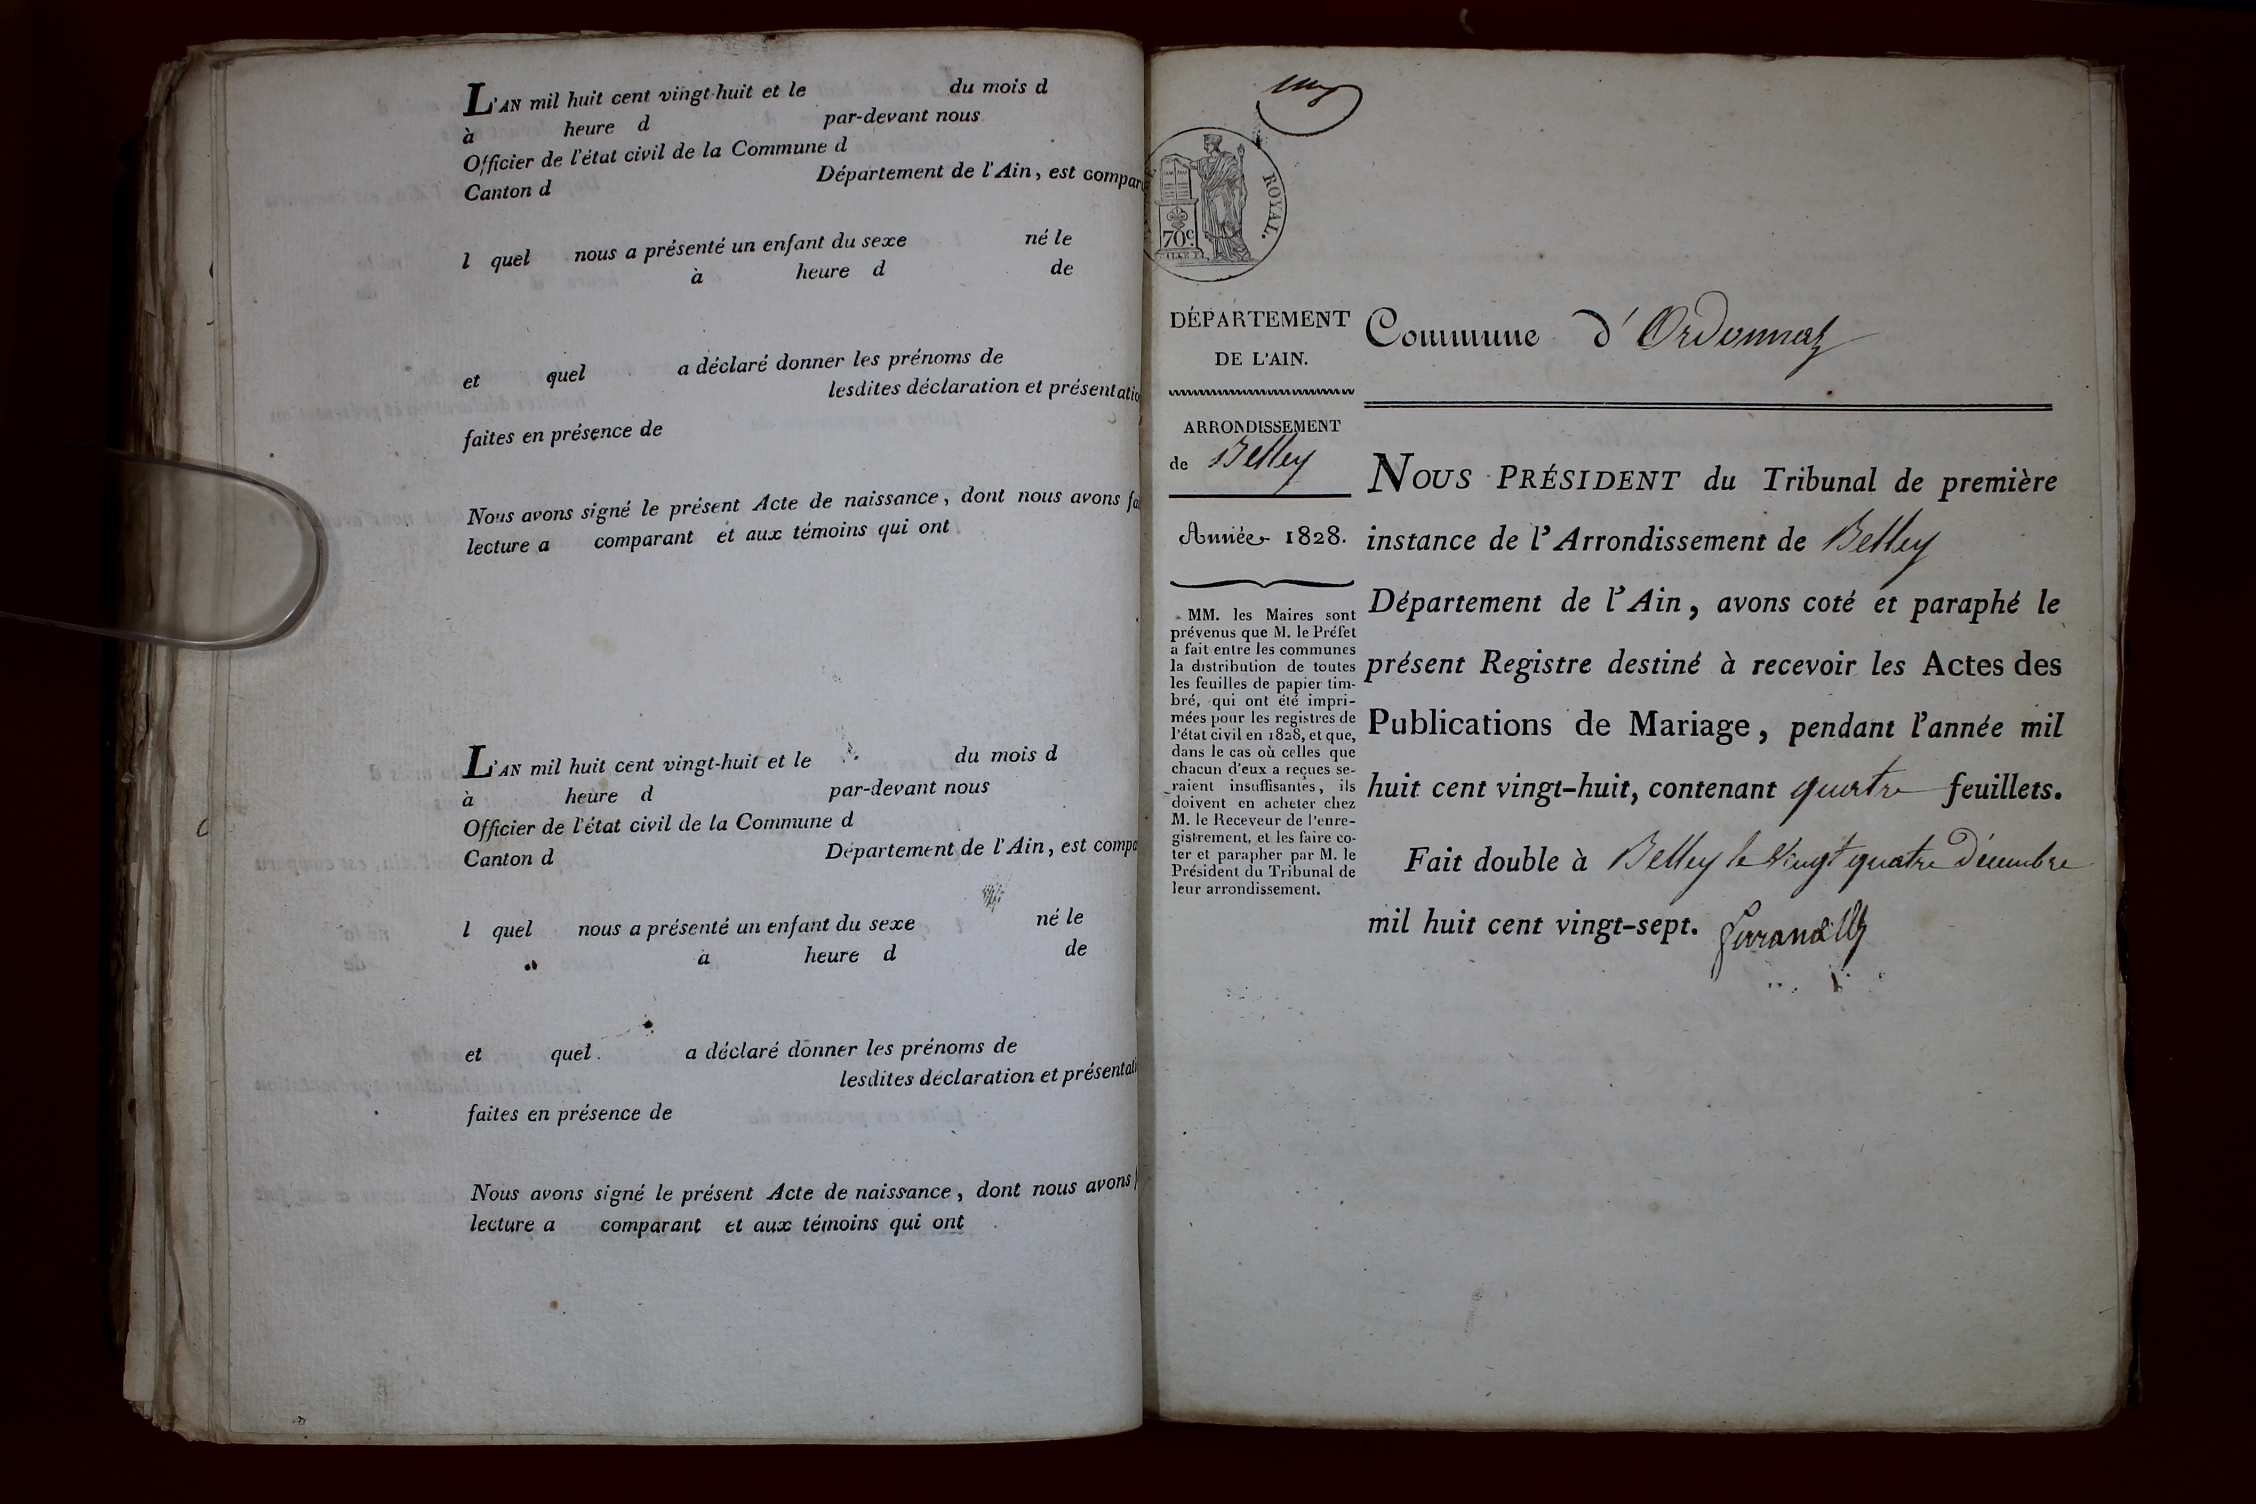 L'AN mil huit cent vingt-huit et le du mois d
à heure d par-devant nous
Officier de l'état civil de la Commune d
Canton d Département de l'Ain, est compar
l quel nous a présenté un enfant du sexe né le
à heure d de
et quel a déclaré donner les prénoms de
lesdites déclaration et présentatio
faites en présence de
Nous avons signé le présent Acte de naissance, dont nous avons fa
lecture a comparant et aux témoins qui ont
L'AN mil huit cent vingt-huit et le du mois d
à heure d par-devant nous
Officier de l'état civil de la Commune d
Canton d Département de l'Ain, est compa
l quel nous a présenté un enfant du sexe né le
à heure d de
et quel a déclaré donner les prénoms de
lesdites déclaration et présentati
faites en présence de
Nous avons signé le présent Acte de naissance, dont nous avons
lecture a comparant et aux témoins qui ont
ROYAL.
70c.
DÉPARTEMENT
DE L'AIN.
ARRONDISSEMENT
de Belley
Année 1828.
MM. les Maires sont
prévenus que M. le Préfet
a fait entre les communes
la distribution de toutes
les feuilles de papier tim-
bré, qui ont été impri-
mées pour les registres de
l'état civil en 1828, et que,
dans le cas où celles que
chacun d'eux a reçues se-
raient insuffisantes, ils
doivent en acheter chez
M. le Receveur de l'enre-
gistrement, et les faire co-
ter et parapher par M. le
Président du Tribunal de
leur arrondissement.
Commune d'Ordonnaz
NOUS PRÉSIDENT du Tribunal de première
instance de l'Arrondissement de Belley
Département de l'Ain, avons coté et paraphé le
présent Registre destiné à recevoir les Actes des
Publications de Mariage, pendant l'année mil
huit cent vingt-huit, contenant quatre feuillets.
Fait double à Belley le Vingt quatre Décembre
mil huit cent vingt-sept.